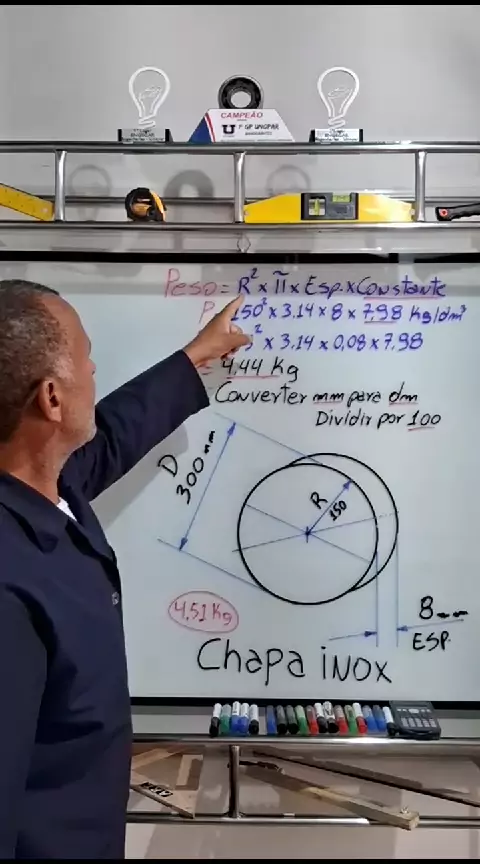 CAMPEÃO
U 1º GP UNIPAR
Peso = R² x π x Esp. x Constante
P 150² x 3.14 x 8 x 7,98 Kg/dm³
² x 3.14 x 0,08 x 7,98
= 4,44 Kg
Converter mm para dm
Dividir por 100
D
300 mm
R
150
8 mm
ESP.
4,51 Kg
Chapa inox